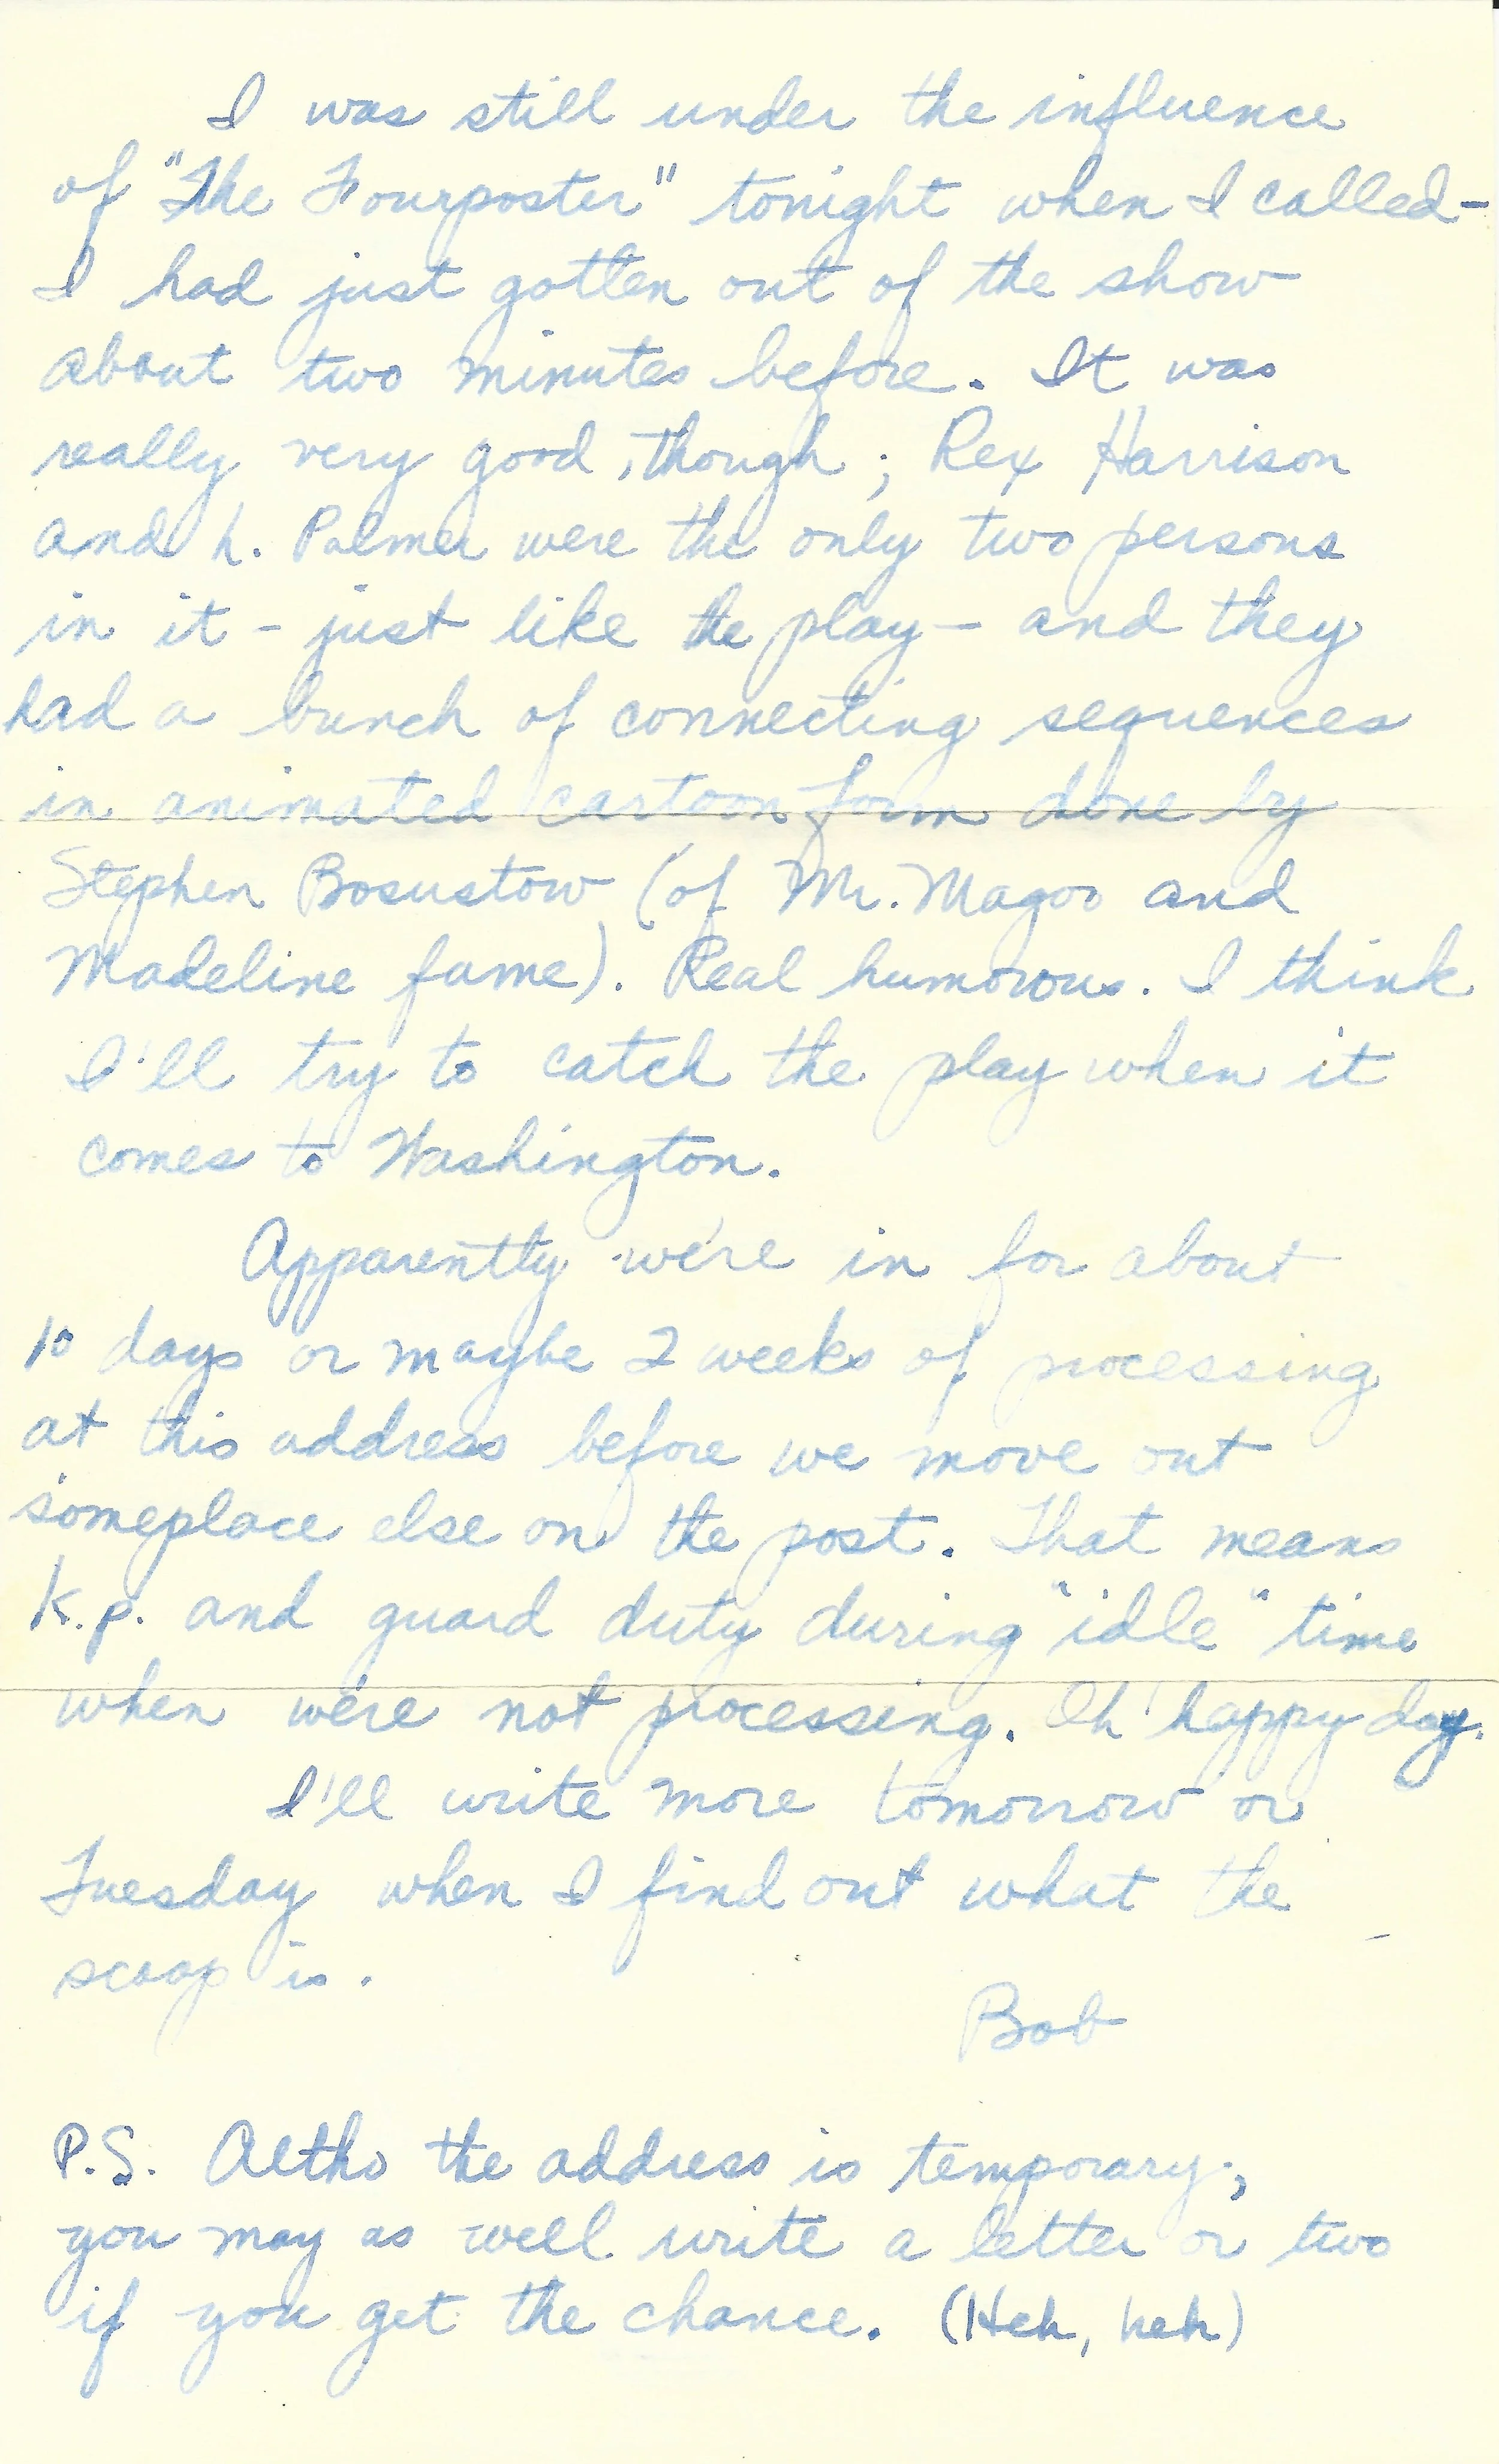 I was still under the influence
of "The Fourposter" tonight when I called-
I had just gotten out of the show
about two minutes before. It was
really very good, though; Rex Harrison
and L. Palmer were the only two persons
in it - just like the play - and they
had a bunch of connecting sequences
in animated cartoon form done by
Stephen Bosustow (of Mr. Magoo and
Madeline fame). Real humorous. I think
I'll try to catch the play when it
comes to Washington.
Apparently we're in for about
10 days or maybe 2 weeks of processing
at this address before we move out
someplace else on the post. That means
K.p. and guard duty during "idle" time
when we're not processing. Oh happy day.
I'll write more tomorrow or
Tuesday when I find out what the
scoop is.
Bob
P.S. Altho the address is temporary,
you may as well write a letter or two
if you get the chance. (Heh, heh)